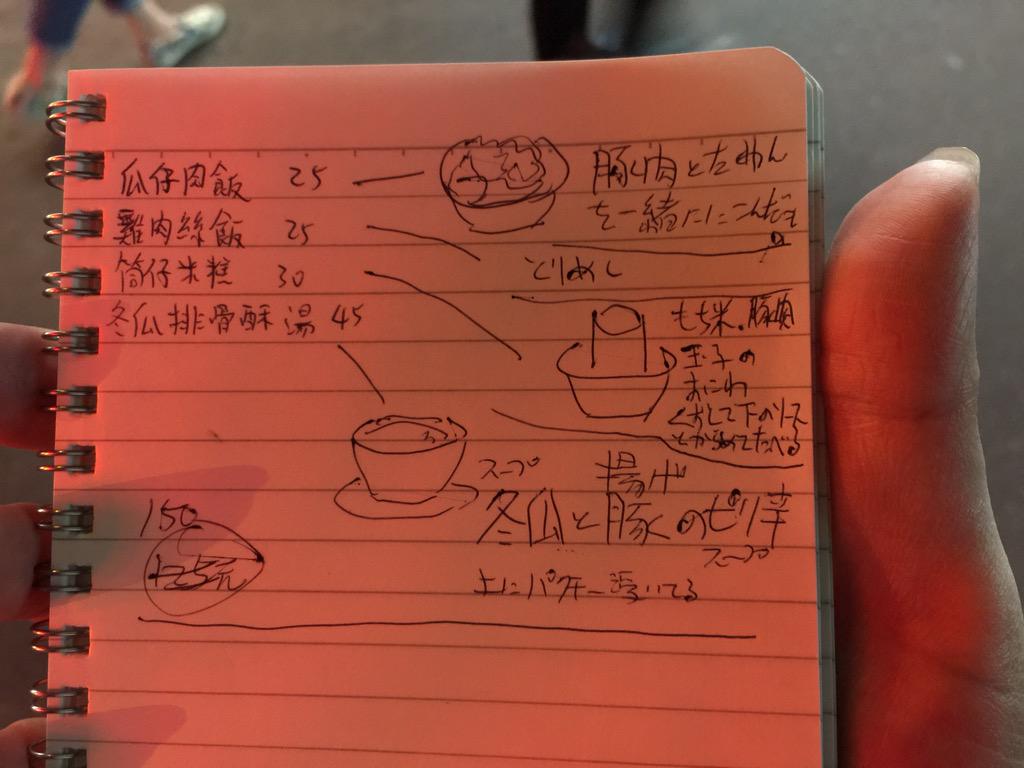 瓜仔肉飯 25
豚肉とためん
を一緒ににこんだも
の
雞肉絲飯 25
とりめし
筒仔米糕 30
もち米。豚肉
玉子の
おにわ
くずして下のソース
とからめてたべる
冬瓜排骨酥湯 45
スープ
揚げ
冬瓜と豚のピリ辛
スープ
上にパクチー浮いてる
150